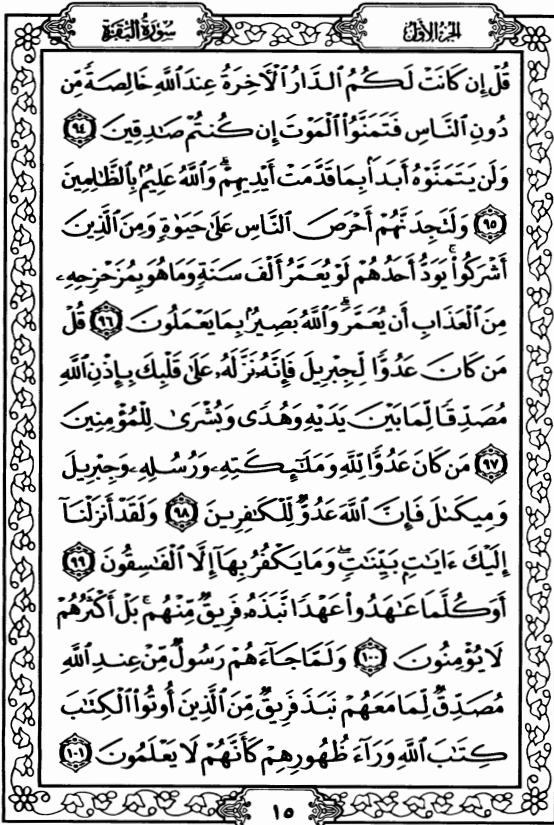 سُورَةُ البَقَرَةِ
الجُزءُ الأوَّلُ
قُلْ إِن كَانَتْ لَكُمُ ٱلدَّارُ ٱلْأَخِرَةُ عِندَ ٱللَّهِ خَالِصَةً مِّن
دُونِ ٱلنَّاسِ فَتَمَنَّوُا۟ ٱلْمَوْتَ إِن كُنتُمْ صَٰدِقِينَ ٩٤
وَلَن يَتَمَنَّوْهُ أَبَدًۢا بِمَا قَدَّمَتْ أَيْدِيهِمْ ۗ وَٱللَّهُ عَلِيمٌۢ بِٱلظَّٰلِمِينَ
٩٥ وَلَتَجِدَنَّهُمْ أَحْرَصَ ٱلنَّاسِ عَلَىٰ حَيَوٰةٍ وَمِنَ ٱلَّذِينَ
أَشْرَكُوا۟ ۚ يَوَدُّ أَحَدُهُمْ لَوْ يُعَمَّرُ أَلْفَ سَنَةٍ وَمَا هُوَ بِمُزَحْزِحِهِۦ
مِنَ ٱلْعَذَابِ أَن يُعَمَّرَ ۗ وَٱللَّهُ بَصِيرٌۢ بِمَا يَعْمَلُونَ ٩٦ قُلْ
مَن كَانَ عَدُوًّا لِّجِبْرِيلَ فَإِنَّهُۥ نَزَّلَهُۥ عَلَىٰ قَلْبِكَ بِإِذْنِ ٱللَّهِ
مُصَدِّقًا لِّمَا بَيْنَ يَدَيْهِ وَهُدًى وَبُشْرَىٰ لِلْمُؤْمِنِينَ
٩٧ مَن كَانَ عَدُوًّا لِّلَّهِ وَمَلَٰٓئِكَتِهِۦ وَرُسُلِهِۦ وَجِبْرِيلَ
وَمِيكَىٰلَ فَإِنَّ ٱللَّهَ عَدُوٌّ لِّلْكَٰفِرِينَ ٩٨ وَلَقَدْ أَنزَلْنَآ
إِلَيْكَ ءَايَٰتٍۭ بَيِّنَٰتٍ ۖ وَمَا يَكْفُرُ بِهَآ إِلَّا ٱلْفَٰسِقُونَ ٩٩
أَوَكُلَّمَا عَٰهَدُوا۟ عَهْدًا نَّبَذَهُۥ فَرِيقٌ مِّنْهُم ۚ بَلْ أَكْثَرُهُمْ
لَا يُؤْمِنُونَ ١٠٠ وَلَمَّا جَآءَهُمْ رَسُولٌ مِّنْ عِندِ ٱللَّهِ
مُصَدِّقٌ لِّمَا مَعَهُمْ نَبَذَ فَرِيقٌ مِّنَ ٱلَّذِينَ أُوتُوا۟ ٱلْكِتَٰبَ
كِتَٰبَ ٱللَّهِ وَرَآءَ ظُهُورِهِمْ كَأَنَّهُمْ لَا يَعْلَمُونَ ١٠١
١٥